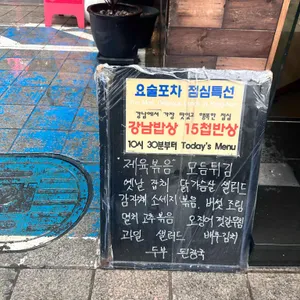 요술포차 점심특선
강남에서 가장 맛있고 행복한 점심
강남밥상 15첩반상
10시 30분부터 Today's Menu
제육볶음 모듬튀김
옛날 잡채 닭가슴살 샐러드
감자채 소세지 볶음, 버섯 조림
멸치 고추볶음 오징어 젓갈무침
과일 샐러드 배추김치
두부 된장국